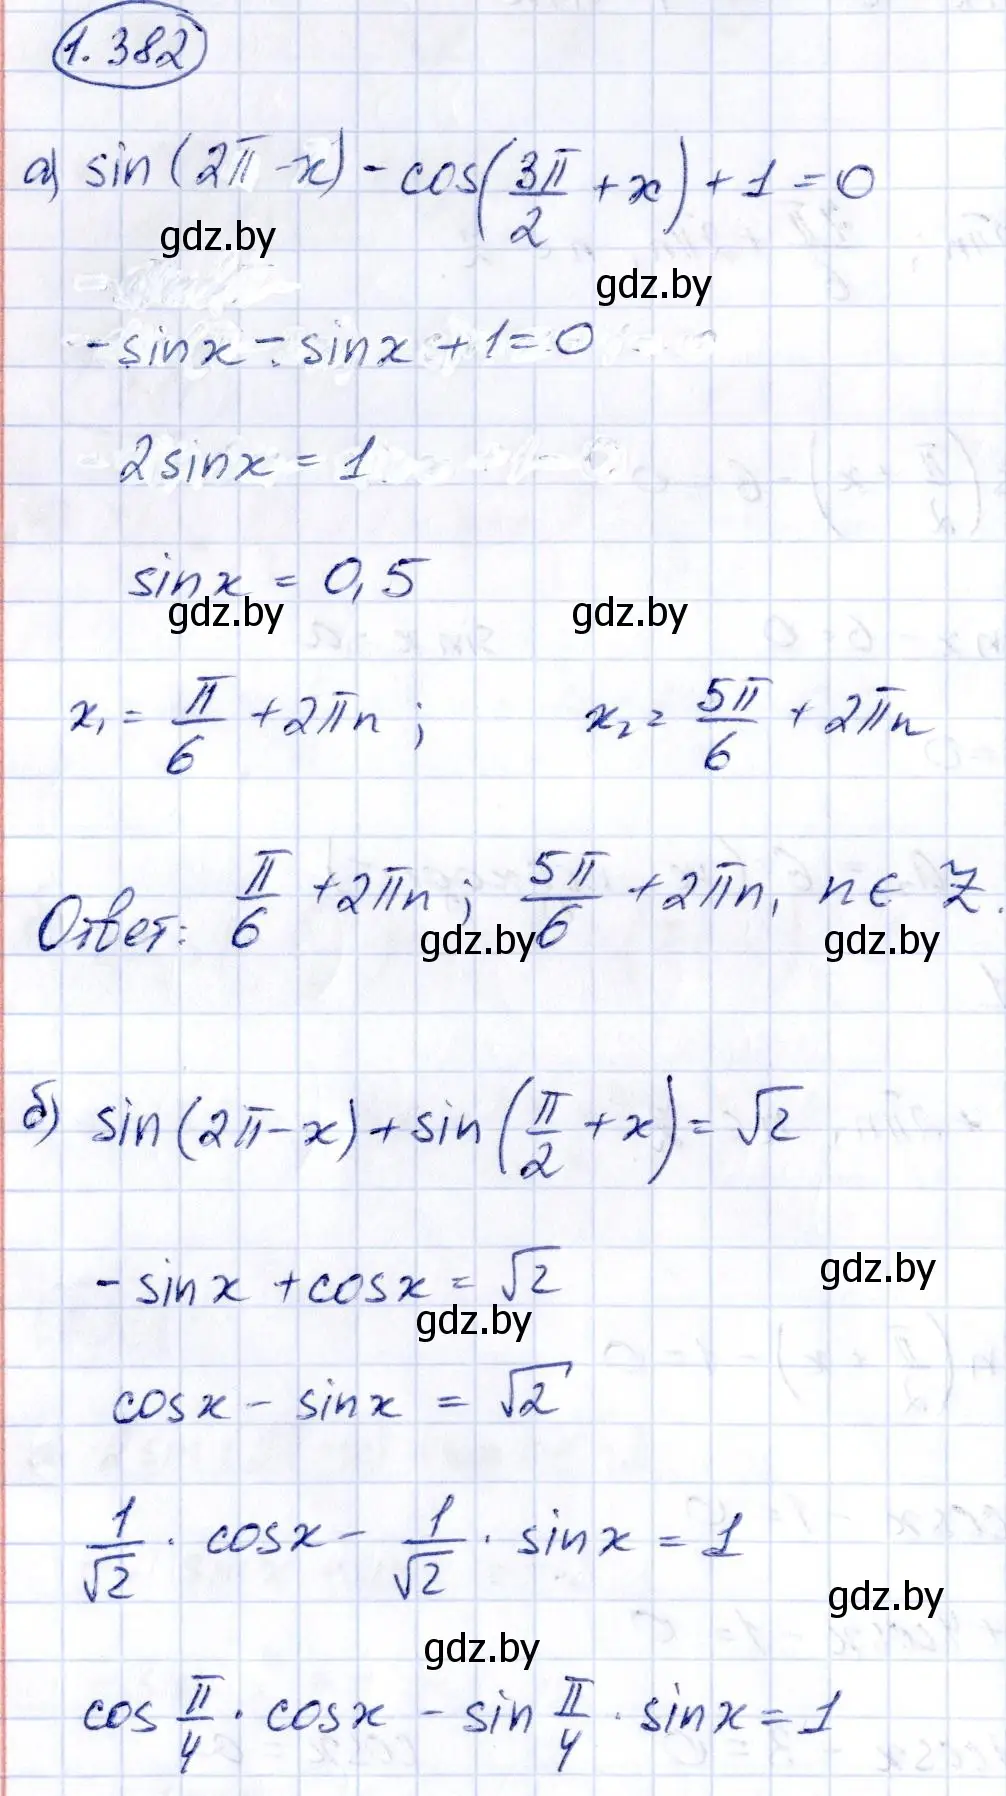 1.382
а) sin(2π - x) - cos(3π/2 + x) + 1 = 0
gdz.by
gdz.by
- sinx - sinx + 1 = 0
2sinx = 1
sinx = 0,5
gdz.by gdz.by
x₁ = π/6 + 2πn ; x₂ = 5π/6 + 2πn
Ответ: π/6 + 2πn ; 5π/6 + 2πn, n ∈ Z.
gdz.by gdz.by
б) sin(2π - x) + sin(π/2 + x) = √2
gdz.by
- sinx + cosx = √2
gdz.by
cosx - sinx = √2
1/√2 · cosx - 1/√2 · sinx = 1
gdz.by
gdz.by
cos π/4 · cosx - sin π/4 · sinx = 1